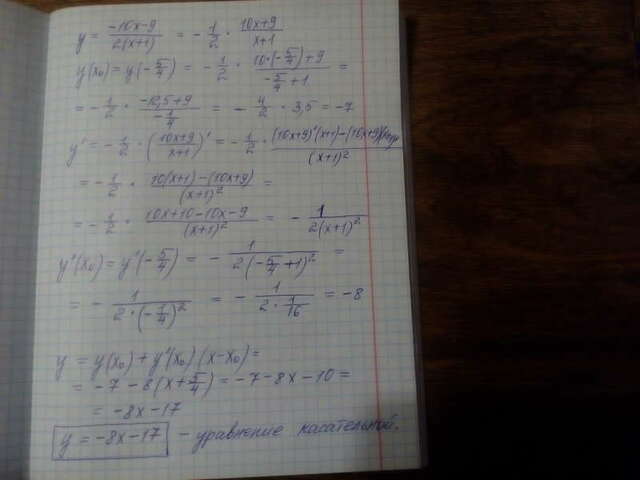 y = \frac{-10x-9}{2(x+1)} = -\frac{1}{2} · \frac{10x+9}{x+1}
y(x₀) = y(-\frac{5}{4}) = -\frac{1}{2} · \frac{10·(-\frac{5}{4})+9}{-\frac{5}{4}+1} =
= -\frac{1}{2} · \frac{-12,5+9}{-\frac{1}{4}} = -\frac{4}{2} · 3,5 = -7
y' = -\frac{1}{2} · (\frac{10x+9}{x+1})' = -\frac{1}{2} · \frac{(10x+9)'(x+1)-(10x+9)(x+1)'}{(x+1)²}
= -\frac{1}{2} · \frac{10(x+1)-(10x+9)}{(x+1)²} =
= -\frac{1}{2} · \frac{10x+10-10x-9}{(x+1)²} = -\frac{1}{2(x+1)²}
y'(x₀) = y'(-\frac{5}{4}) = -\frac{1}{2(-\frac{5}{4}+1)²} =
= -\frac{1}{2·(-\frac{1}{4})²} = -\frac{1}{2·\frac{1}{16}} = -8
y = y(x₀) + y'(x₀)(x-x₀) =
= -7-8(x+\frac{5}{4}) = -7-8x-10 =
= -8x-17
y = -8x-17 - уравнение касательной.